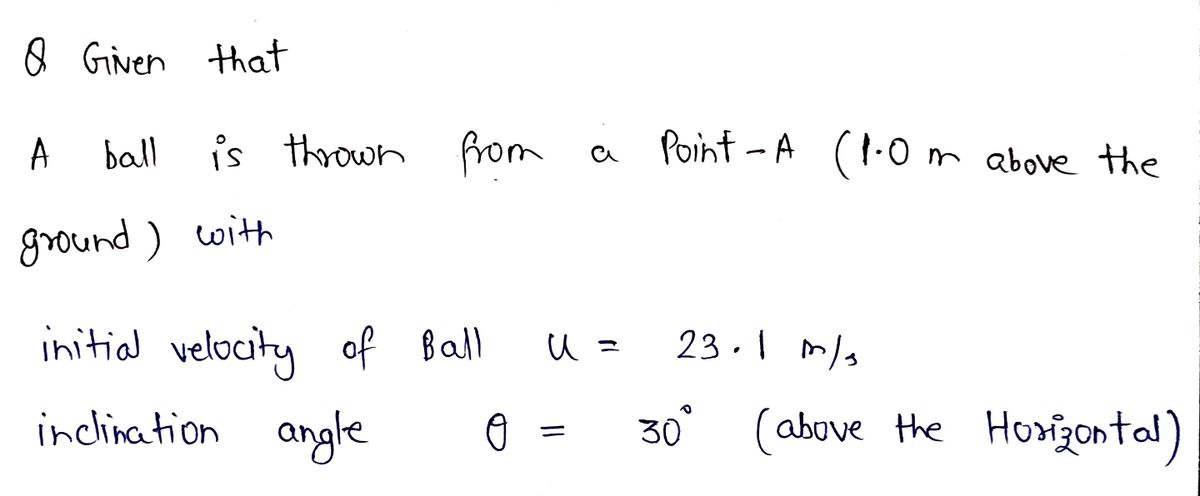 Q Given that
A ball is thrown from a Point-A (1.0 m above the
ground) with
initial velocity of Ball u = 23.1 m/s
inclination angle θ = 30° (above the Horizontal)